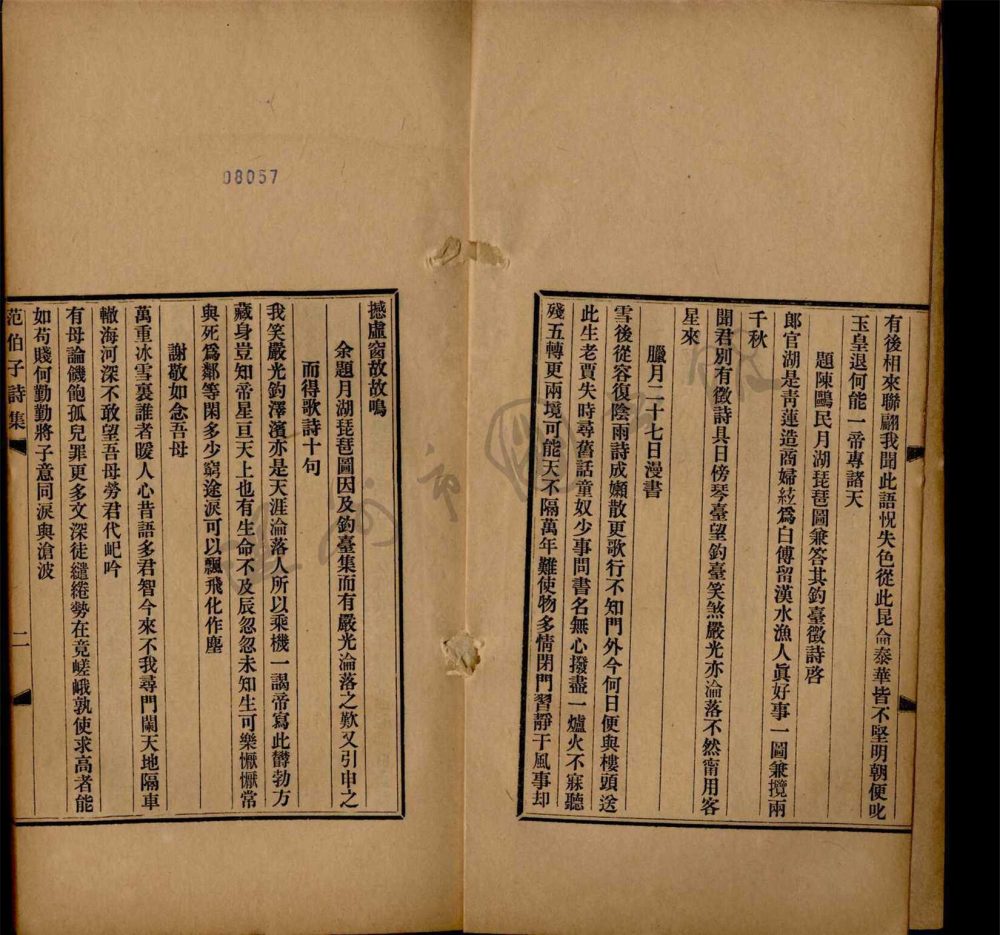 有後相來聯翩我聞此語怳失色從此昆侖泰華皆不堅明朝便叱
玉皇退何能一帝專諸天
題陳鷗民月湖琵琶圖兼答其釣臺徵詩啓
郎官湖是靑蓮造商婦絃爲白傅留漢水漁人眞好事一圖兼攬兩
千秋
聞君別有徵詩具日傍琴臺望釣臺笑煞嚴光亦淪落不然甯用客
星來
臘月二十七日漫書
雪後從容復陰雨詩成嬾散更歌行不知門外今何日便與樓頭送
此生老賈失時尋舊話童奴少事問書名無心撥盡一爐火不寐聽
殘五轉更兩境可能天不隔萬年難使物多情閉門習靜于風事却
撼虛窗故故鳴
余題月湖琵琶圖因及釣臺集而有嚴光淪落之歎又引申之
而得歌詩十句
我笑嚴光釣澤濱亦是天涯淪落人所以乘機一謁帝寫此鬱勃方
藏身豈知帝星亘天上也有生命不及辰忽忽未知生可樂懨懨常
與死爲鄰等閑多少窮途淚可以飄飛化作塵
謝敬如念吾母
萬重冰雪裏誰者暖人心昔語多君智今來不我尋門闌天地隔車
轍海河深不敢望吾母勞君代屺吟
有母論饑飽孤兒罪更多文深徒繾綣勢在竟嵯峨孰使求高者能
如苟賤何勤勤將子意同淚與滄波
范伯子詩集
二
08057